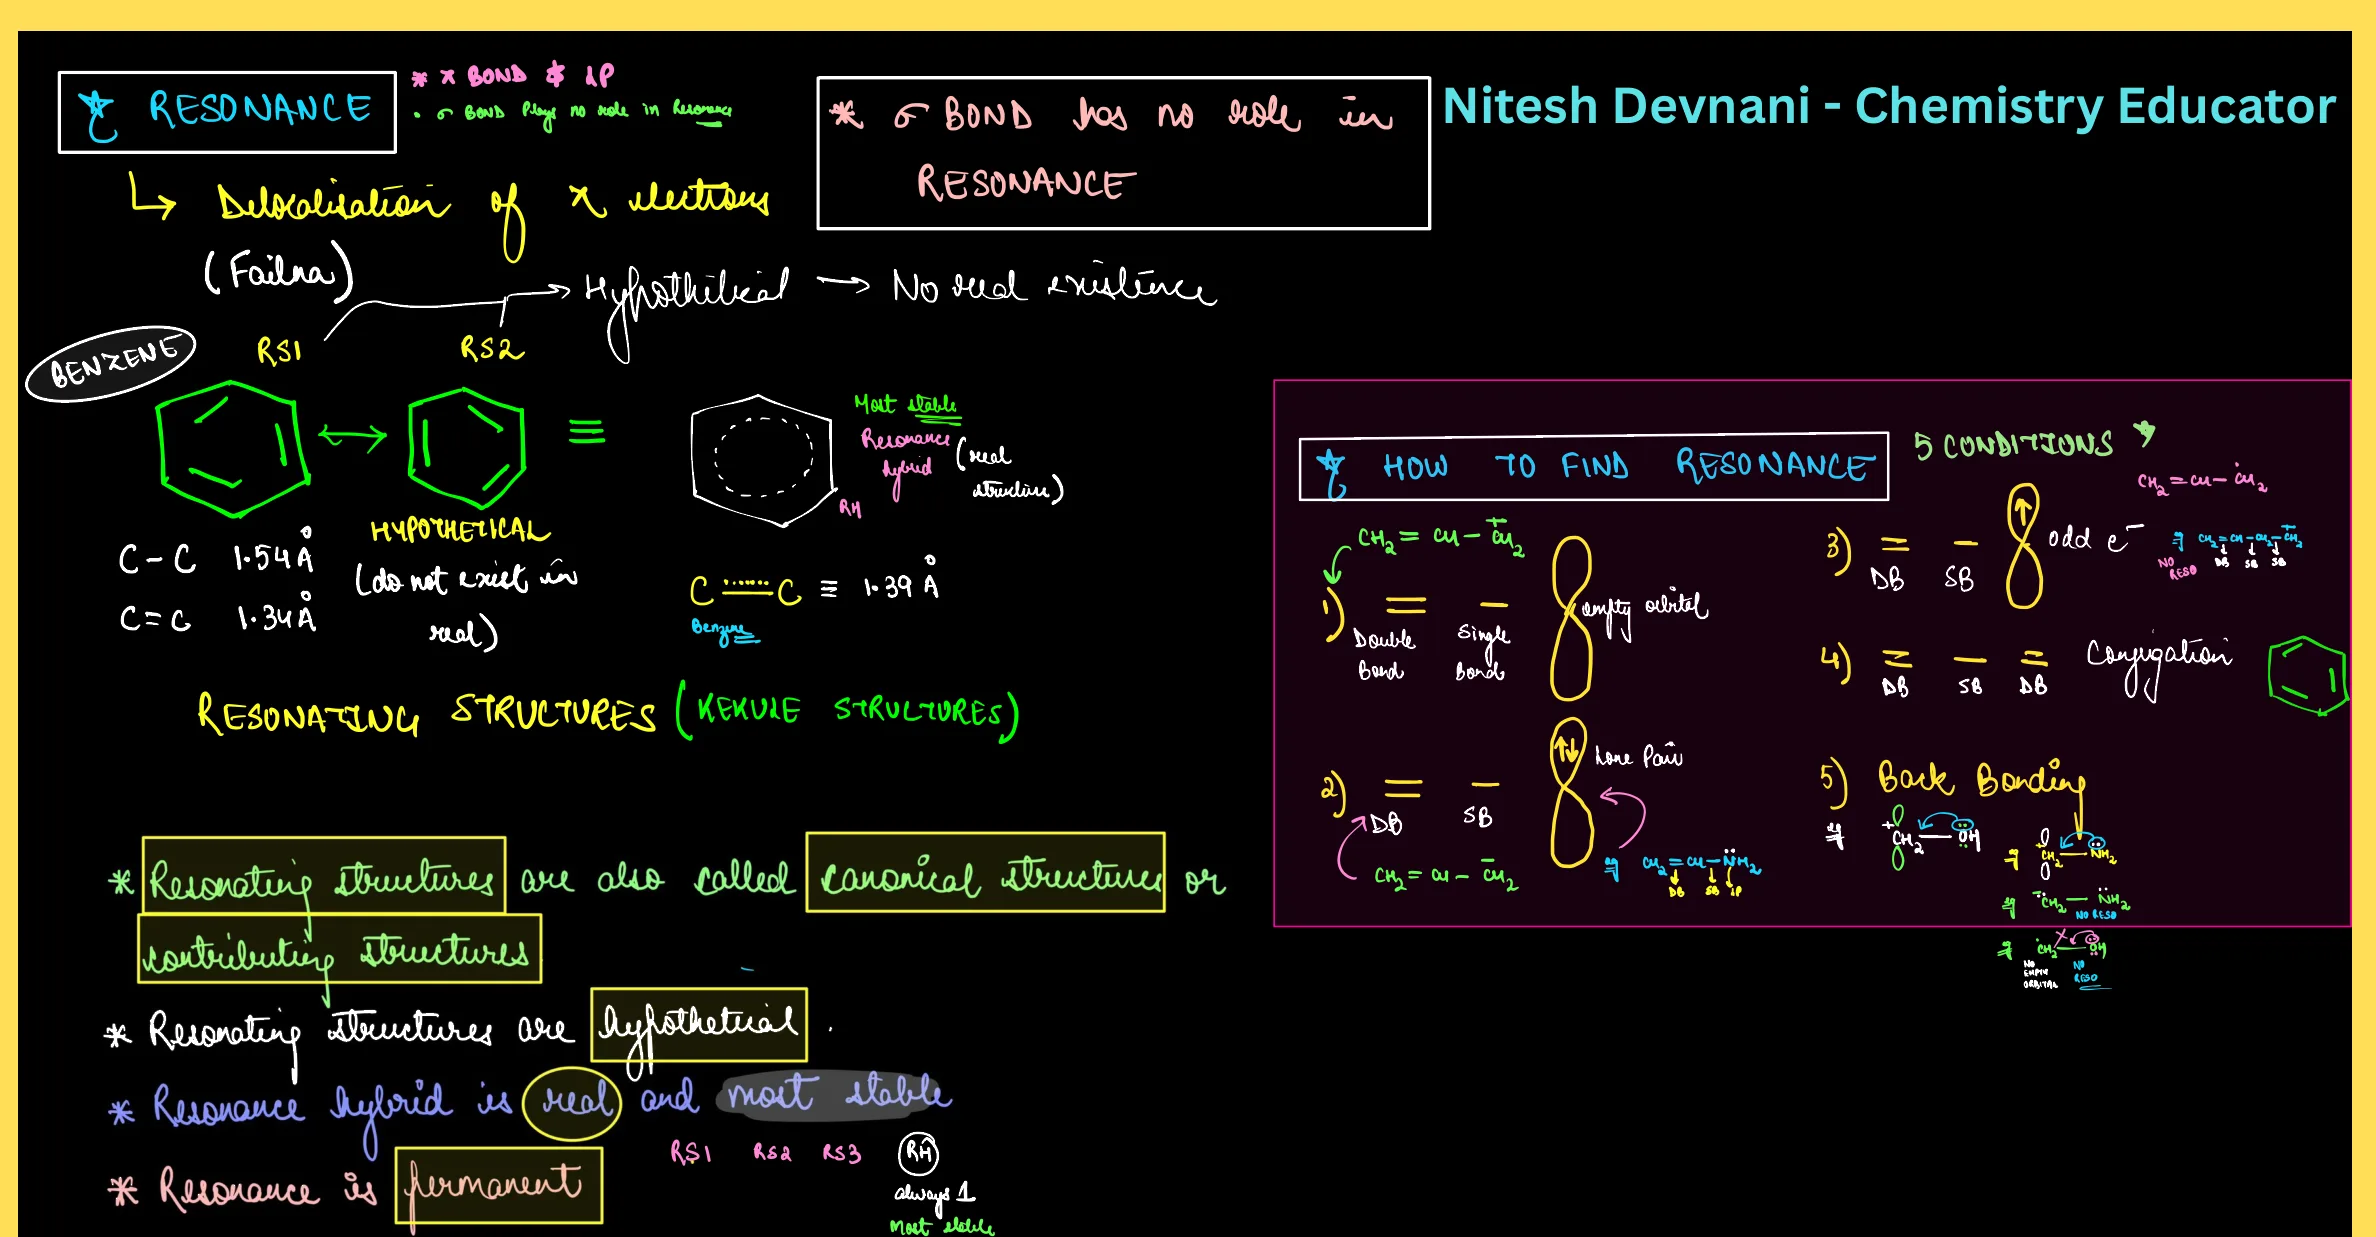 RESONANCE
* π BOND & lP
• σ BOND Plays no role in Resonance
* σ BOND has no role in
RESONANCE
Nitesh Devnani - Chemistry Educator
↳ Delocalisation of π electrons
(Failna)
→ Hypothetical → No real existence
BENZENE
RS1 RS2
↔ ≡
Most stable
Resonance hybrid
(real structure)
RH
HYPOTHETICAL
(do not exist in
real)
C - C 1.54 Å
C = C 1.34 Å
C C ≡ 1.39 Å
Benzene
RESONATING STRUCTURES (KEKULE STRUCTURES)
* Resonating structures are also called canonical structures or
contributing structures
* Resonating structures are hypothetical.
* Resonance hybrid is real and most stable
RS1 RS2 RS3 RH
always 1
Most stable
* Resonance is permanent
HOW TO FIND RESONANCE
5 CONDITIONS
CH2 = CH - C+H2
1) = - empty orbital
Double Bond
Single Bond
2) = - Lone Pair
DB SB
CH2 = CH - C-H2
eg CH2 = CH - NH2
DB SB lP
3) = - odd e-
DB SB
CH2 = CH - CH2
eg CH2 = CH - CH2 - CH2
NO RESO
DB SB SB
4) = - = Conjugation
DB SB DB
5) Back Bonding
eg +CH2 — OH
eg +CH2 — NH2
eg -CH2 — NH2
NO RESO
eg CH2 — OH
NO EMPTY ORBITAL
NO RESO